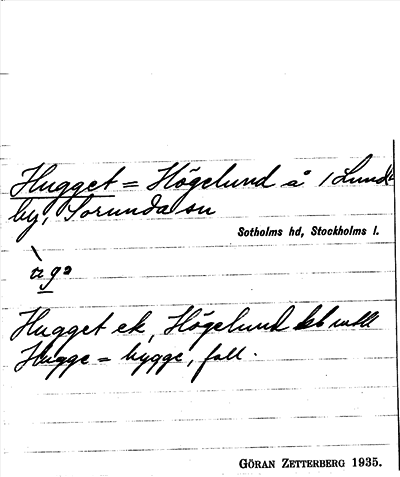 Hugget = Högelund å 1 Lund
by, Sorunda sn
Sotholms hd, Stockholms l.
Hugget ek, Högelund
Hugge = bygge, fall.
GÖRAN ZETTERBERG 1935.